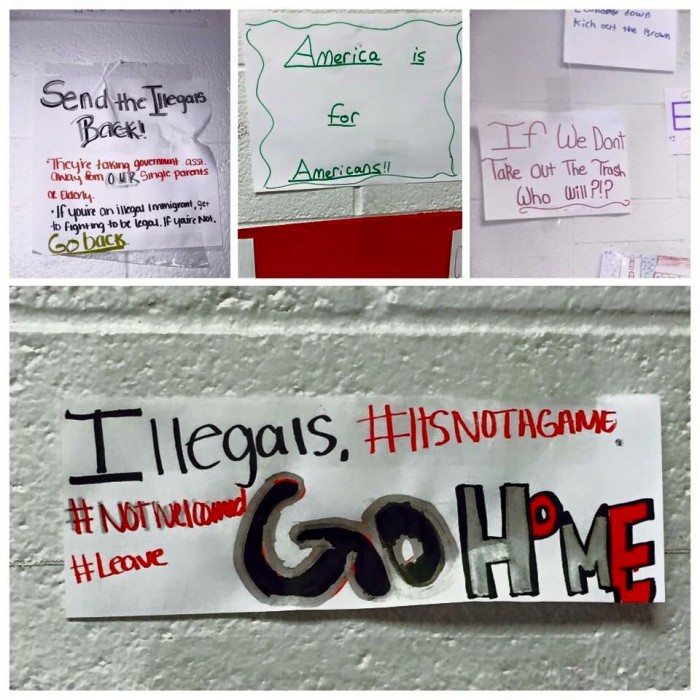 Send the Illegals
Back!
• They're taking government asst.
away from OUR Single parents
or Elderly.
• If you're an illegal immigrant, get
to fighting to be legal. If you're Not,
Go back
America is
for
Americans!!
down
Kick out the Brown
If We Dont
Take Out The Trash
Who Will?!?
E
Illegals, #ITSNOTAGAME.
#NOTWelcomed
#Leave
GO HOME